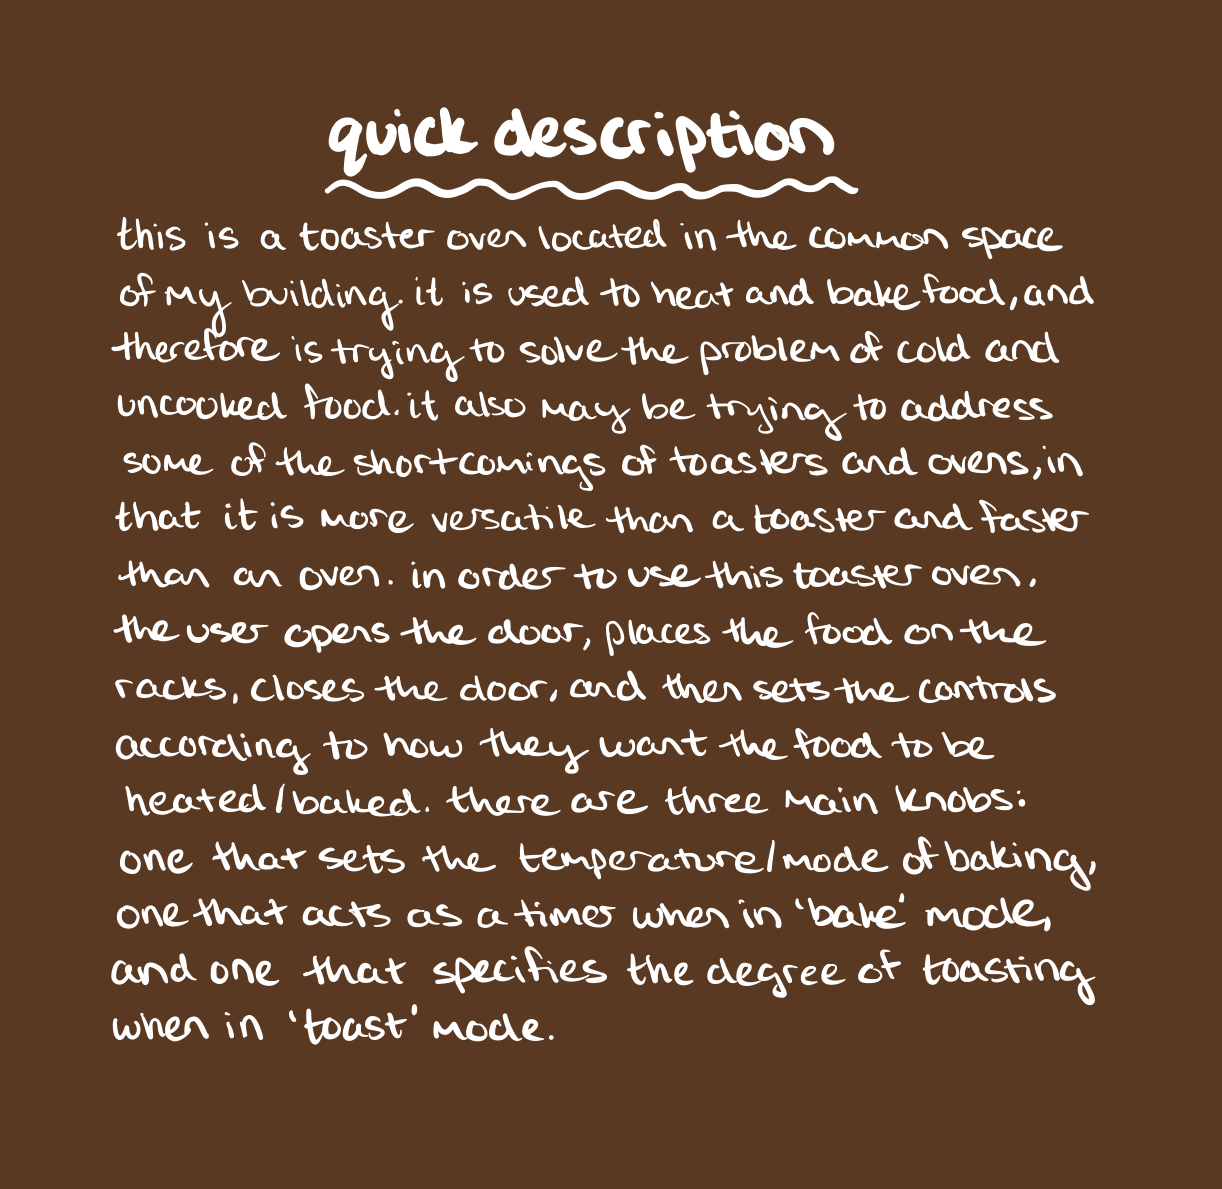 quick description
this is a toaster oven located in the common space
of my building. it is used to heat and bake food, and
therefore is trying to solve the problem of cold and
uncooked food. it also may be trying to address
some of the shortcomings of toasters and ovens, in
that it is more versatile than a toaster and faster
than an oven. in order to use this toaster oven,
the user opens the door, places the food on the
racks, closes the door, and then sets the controls
according to how they want the food to be
heated/baked. there are three main knobs:
one that sets the temperature/mode of baking,
one that acts as a timer when in 'bake' mode,
and one that specifies the degree of toasting
when in 'toast' mode.